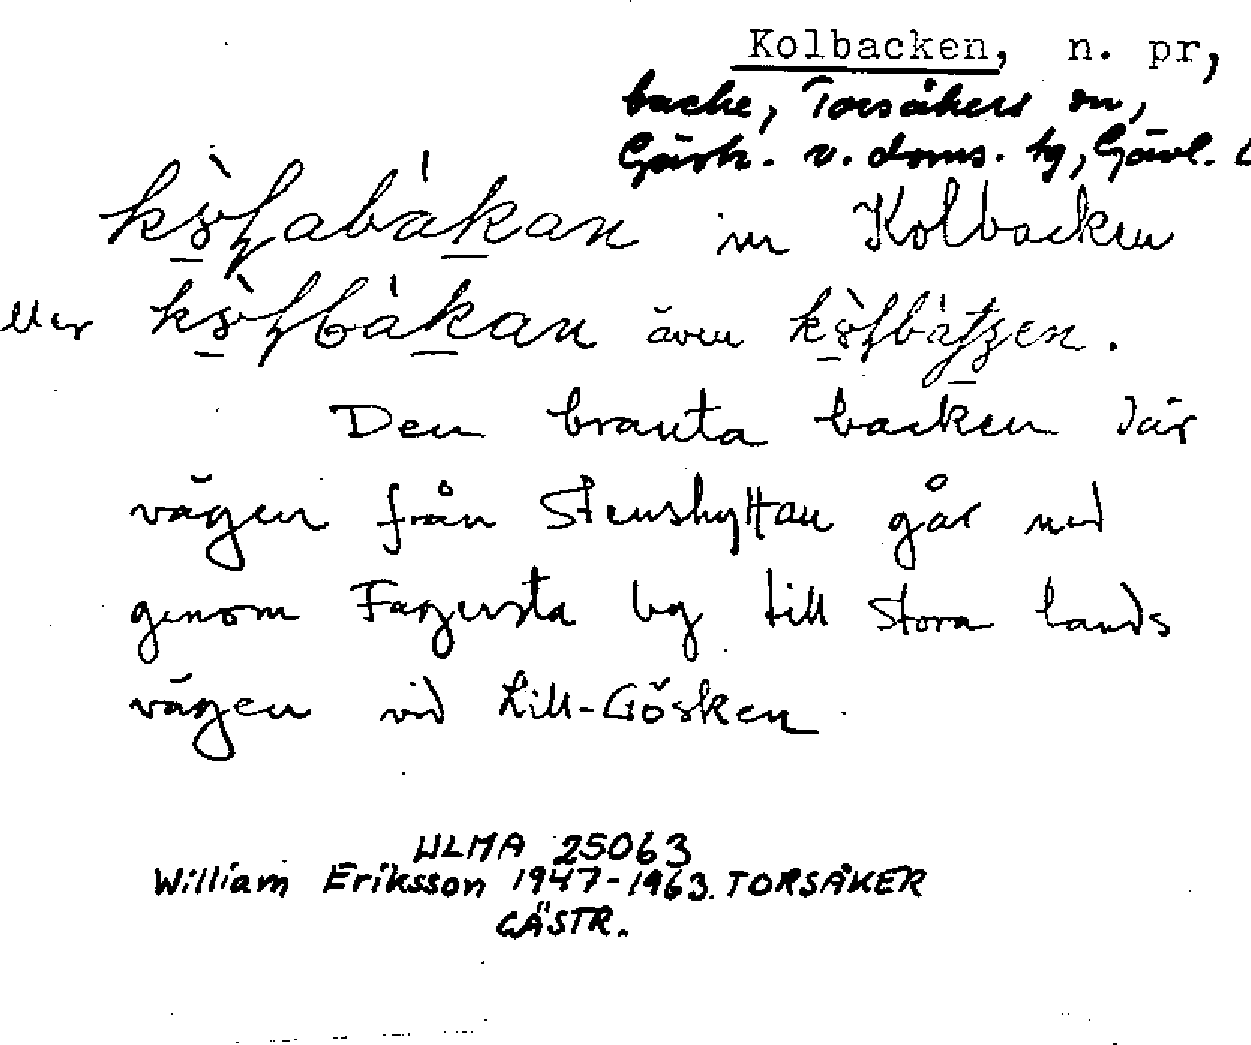 Kolbacken, n. pr,
backe, Torsåkers sn,
Gästr. v. doms. tg, Gävl. L
in Kolbacken
även
Den branta backen där
vägen från Stenshyttan går ned
genom Fagersta by till stora lands
vägen vid Lill-Gösken
ULMA 25063
William Eriksson 1947-1963. TORSÅKER
GÄSTR.